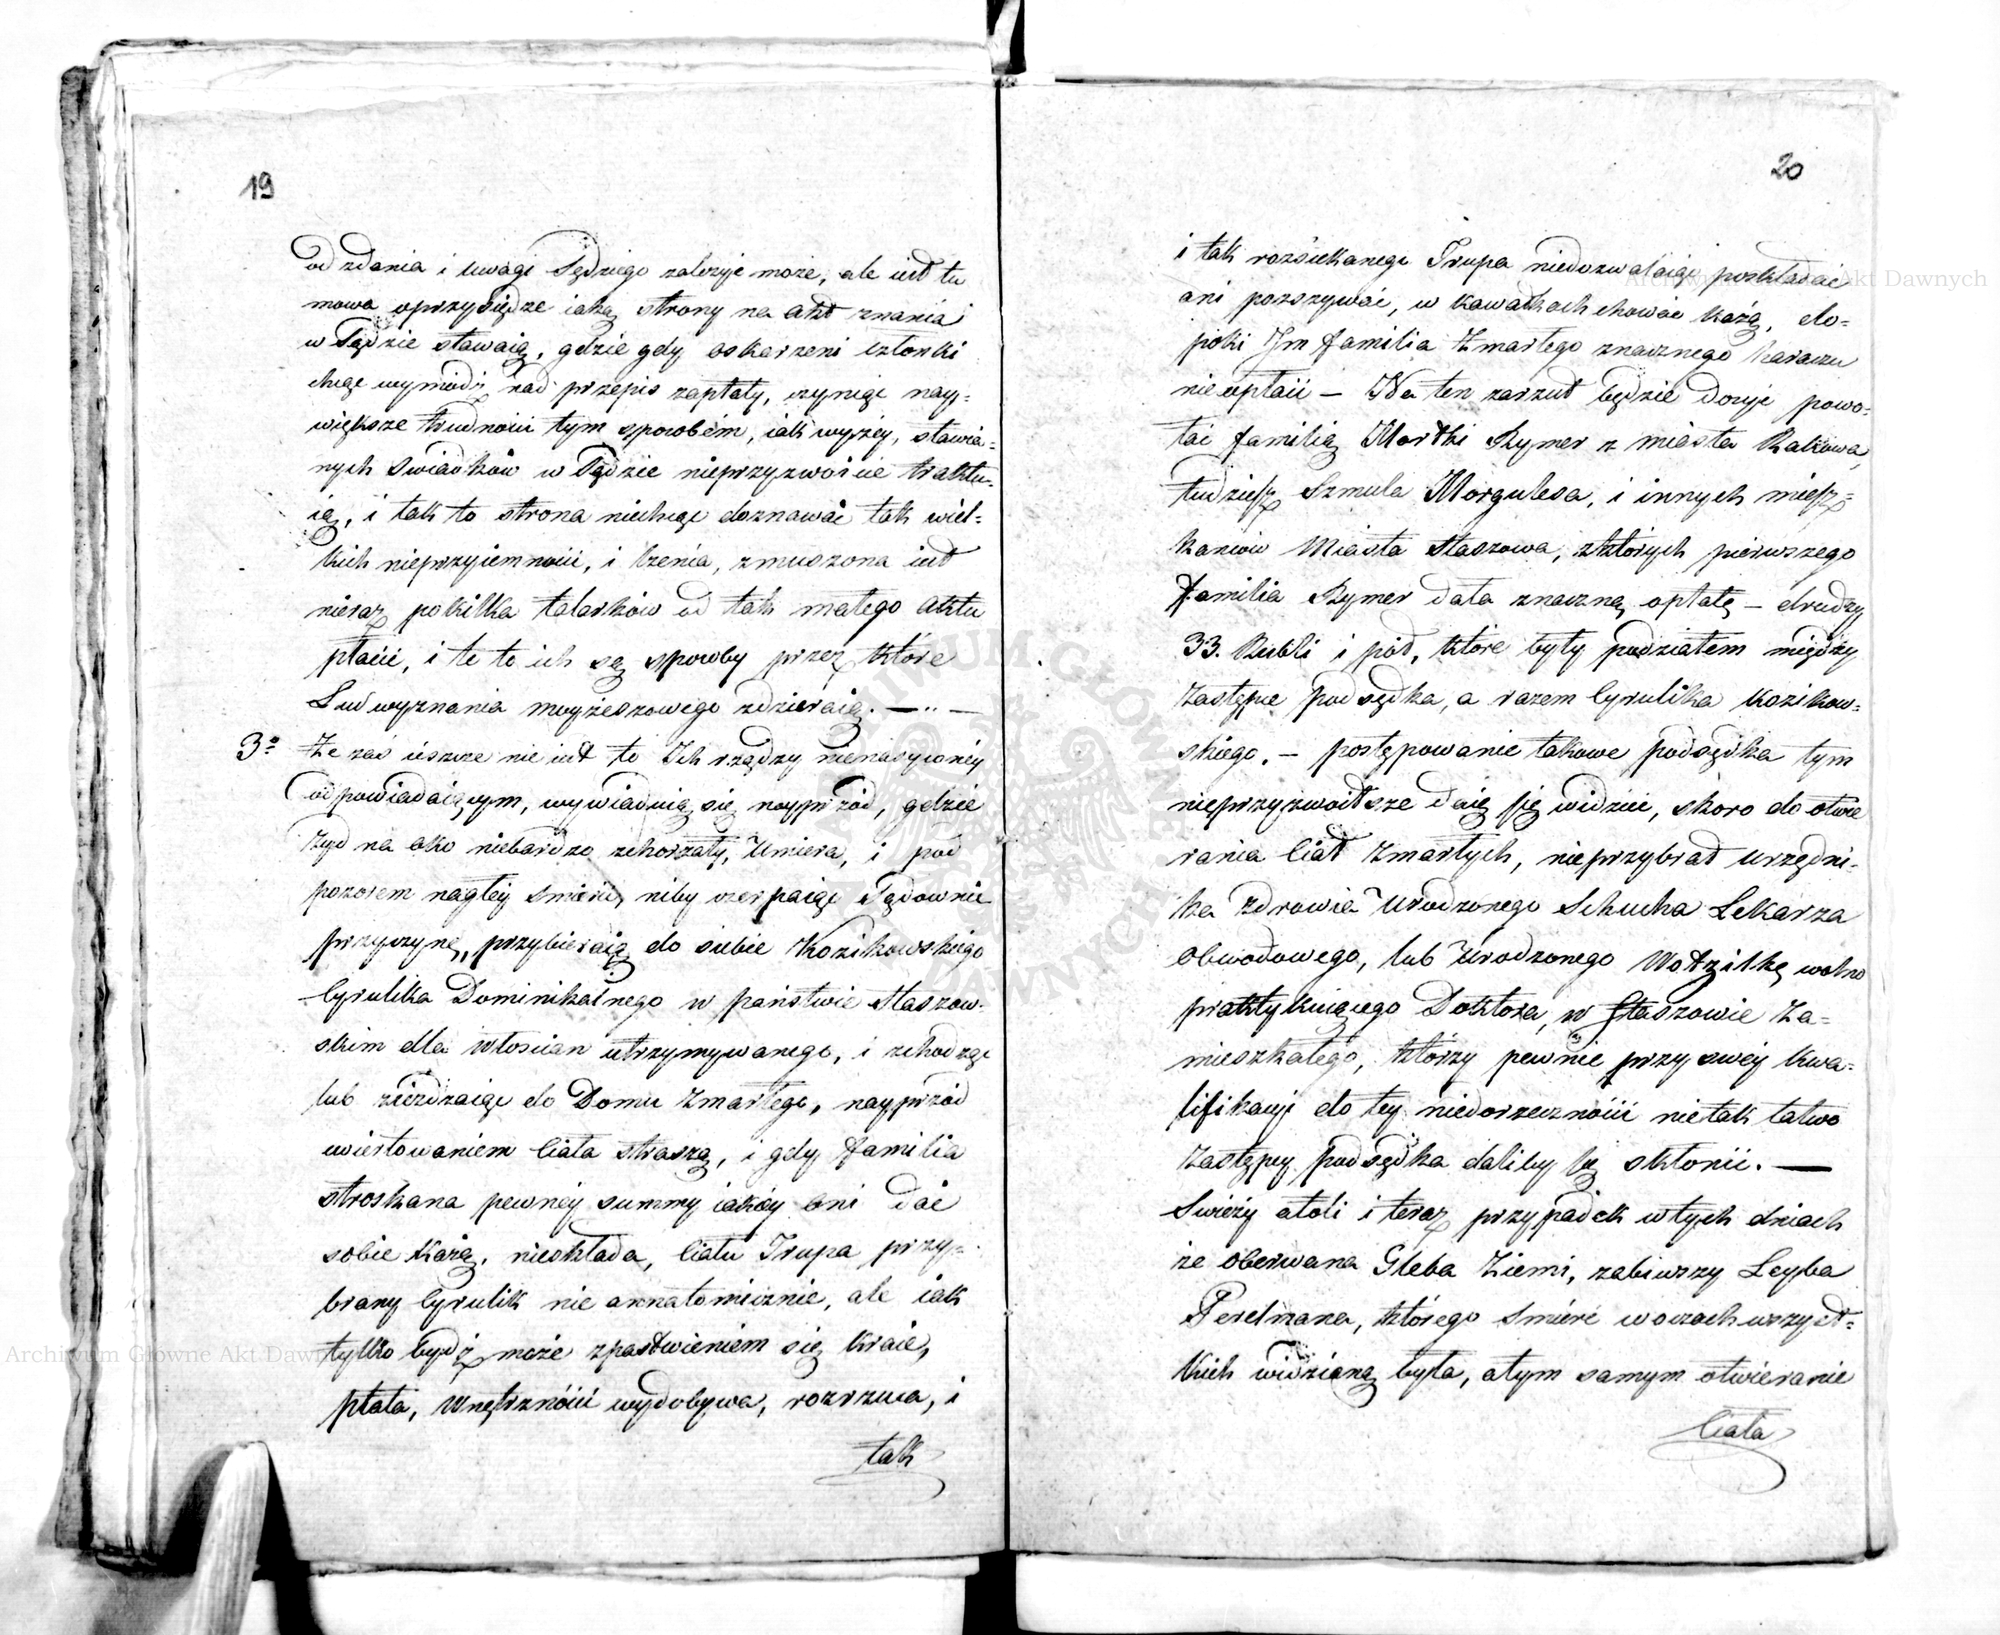 19
od zdania i uwagi Sędziego zalezyć może, ale iest tu
mowa oprzysiędze iaką strony na akt znania
w Sądzie stawaią, gdzie gdy oskarzeni członki
chcąc wymódz nad przepis zapłaty, czynią nay-
większe trudności tym sposobem, iak wyżey, stawia-
nych Swiadków w Sądzie nieprzyzwoicie traktu-
ią, i tak to strona niechcąc doznawać tak wiel-
kich nieprzyiemności, i łżenia, zmuszona iest
nieraz pokilka talarków od tak małego aktu
płacić, i te to ich są sposoby przez które
Lud wyznania moyżeszowego zdzieraią. — .. —
3o Że zaś ieszcze nie iest to Ich rządzy nienasyconéy
odpowiadaiącym, wywiaduią się nayprzód, gdzie
Żyd na oko niebardzo zchorzały, Umiera, i pod
pozorem nagłey smierci, niby czerpaiąc Sądownie
przyczynę, przybieraią do siebie Kozikowskiego
Cyrulika Dominikalnego w państwie Staszow-
skim dla Włościan utrzymywanego, i zchodząc
lub zieżdzaiąc do Domu Zmarłego, nayprzód
ćwiertowaniem Ciała straszą, i gdy familia
stroskana pewnéy summy iakiéy oni dać
sobie każą, nieskłada, Ciału Trupa przy-
brany Cyrulik nie annatomicznie, ale iak
tylko bydź może zpastwieniem się kraie,
płata, Wnętrzności wydobywa, rozrzuca, i
tak
20
i tak rozsiekanego Trupa niedozwalaiąc poskładać
ani pozszywać, w kawałkach chować każą, do-
poki Im familia Zmarłego znacznego haraczu
nieopłaci — Na ten zarzut będzie dosyć powo-
łać familią Mortki Rymer z miasta Rakowa,
tudziesz Szmula Morgulesa, i innych miesz-
kańców Miasta Staszowa, zktórych pierwszego
familia Rymer dała znaczną opłatę — drudzy
33. Rubli i poł, które były podziałem między
Zastępce podsędka, a razem Cyrulika Kozikow-
skiego. — postępowanie takowe podsędka tym
nieprzyzwoitsze daię się widzieć, skoro do otwie
rania Ciał Zmarłych, nieprzybrał Urzędni-
ka Zdrowia Urodzonego Schucha Lekarza
Obwodowego, lub Urodzonego Wotzilkę wolno
praktykuiącego Doktora, w Staszowie Za-
mieszkałego, którzy pewnie przy swéy kwa-
lifikacji do tey niedorzeczności nietak łatwo
Zastępcy podsędka daliby się skłonić. —
Swieży atoli i teraz przypadek wtych dniach
że oberwana Gleba Ziemi, zabiwszy Leyba
Perelmana, którego Smierć woczach wszyst-
kich widzianą była, atym samym otwieranie
Ciała